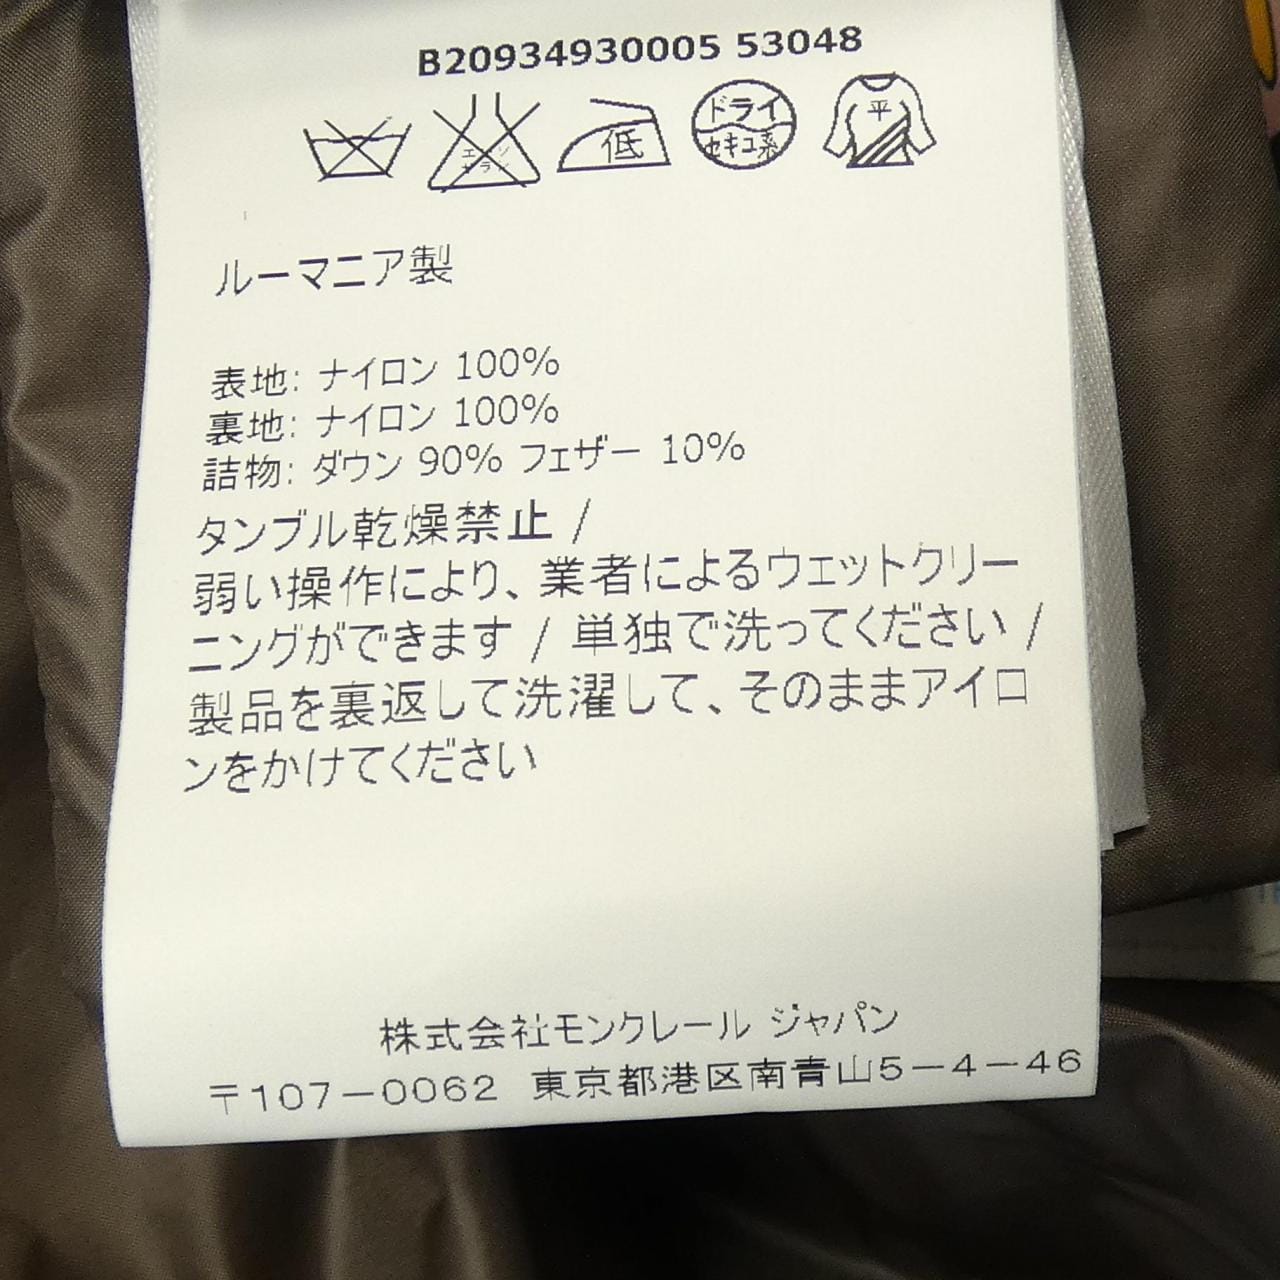 B20934930005 53048
エンソ
サラシ
低
ドライ
セキユ系
平
ルーマニア製
表地: ナイロン 100%
裏地: ナイロン 100%
詰物: ダウン 90% フェザー 10%
タンブル乾燥禁止 /
弱い操作により、業者によるウェットクリー
ニングができます / 単独で洗ってください /
製品を裏返して洗濯して、そのままアイロ
ンをかけてください
株式会社モンクレール ジャパン
〒107-0062 東京都港区南青山5-4-46